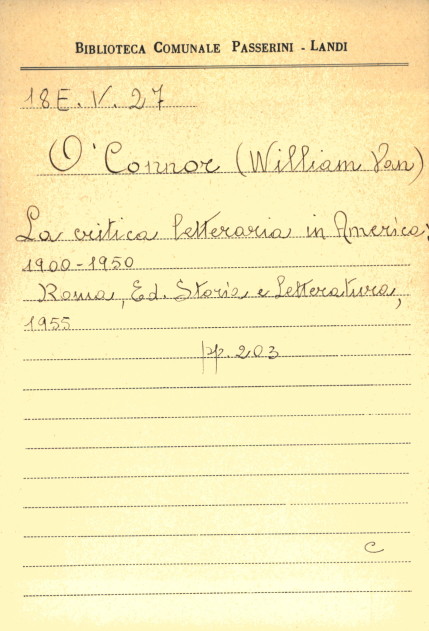 BIBLIOTECA COMUNALE PASSERINI - LANDI
18 E. V. 27
O'Connor (William Van)
La critica letteraria in America:
1900-1950
Roma, Ed. Storia e Letteratura,
1955
pp. 203
C